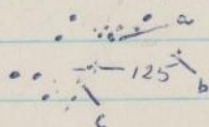 a
125
b
c